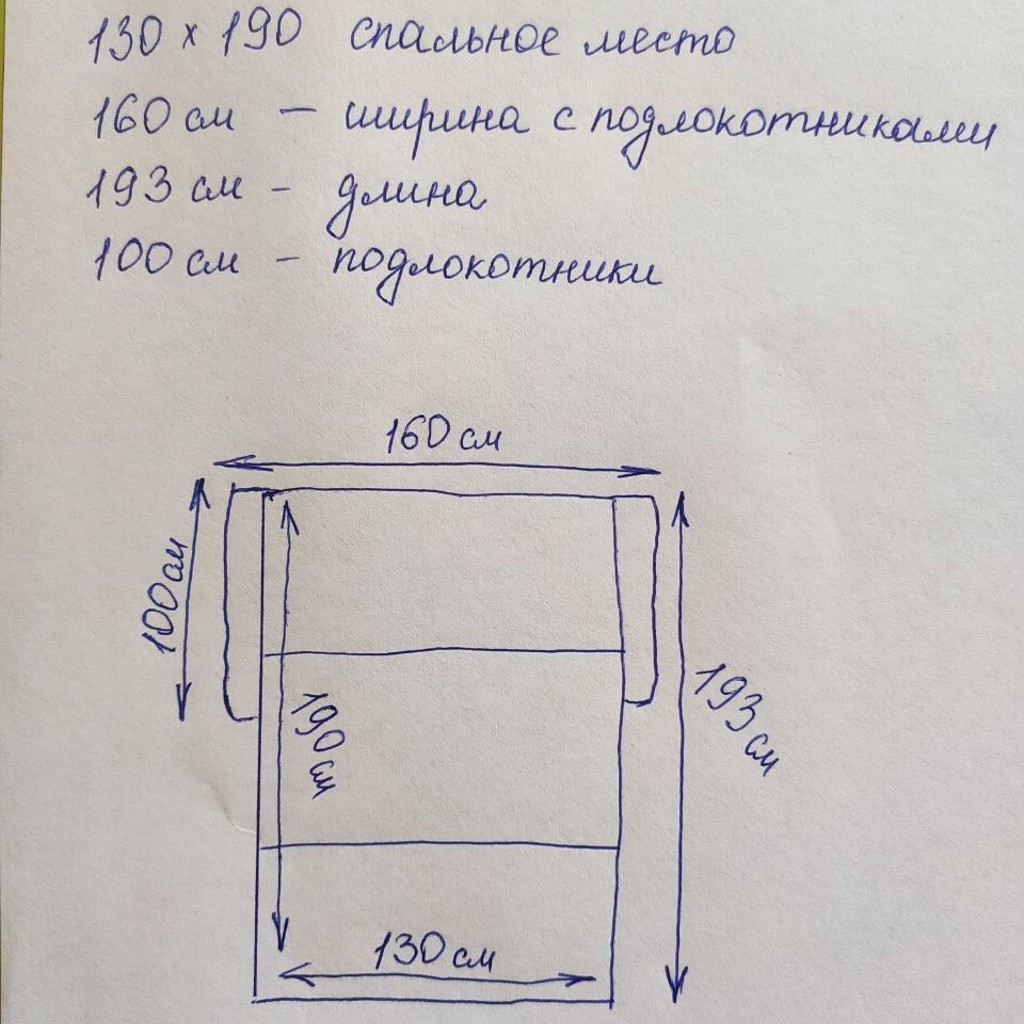 130 x 190 спальное место
160 см — ширина с подлокотниками
193 см - длина
100 см - подлокотники
160 см
100 см
190 см
193 см
130 см